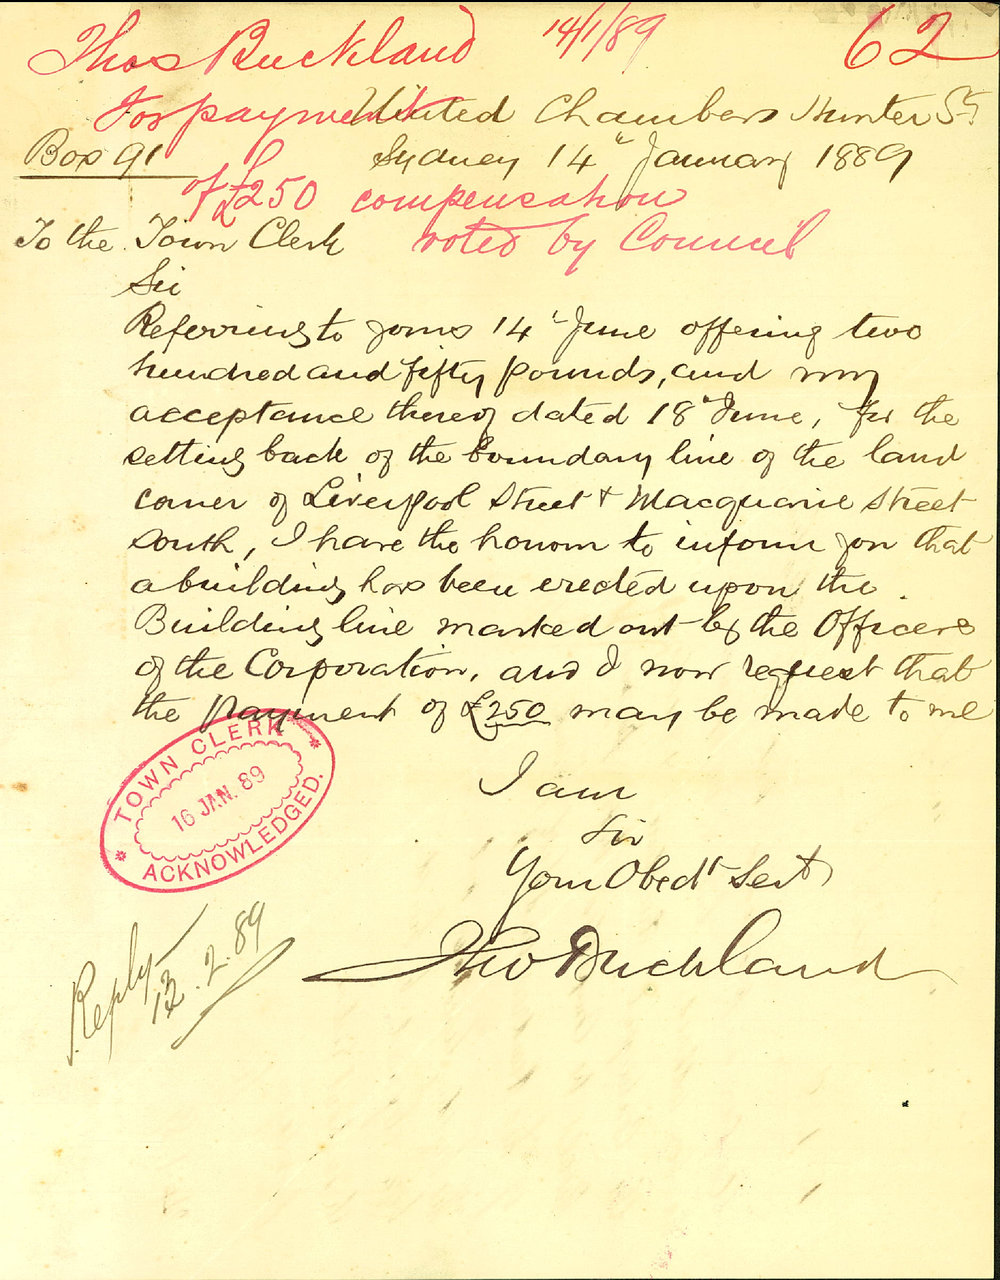 Thos Buckland 14/1/89 62
For payment
United Chambers Hunter St
Box 91
Sydney 14" January 1889
of £250 compensation
voted by Council
To the Town Clerk
Sir
Referring to yours 14" June offering two
hundred and fifty pounds, and my
acceptance thereof dated 18" June, for the
setting back of the boundary line of the land
corner of Liverpool Street & Macquarie Street
South, I have the honour to inform you that
a building has been erected upon the
Building line marked out by the Officers
of the Corporation, and I now request that
the payment of £250 may be made to me
TOWN CLERK
16 JAN. 89
ACKNOWLEDGED.
I am
Sir
Your Obedt Servt
Thos Buckland
Reply
13.2.89